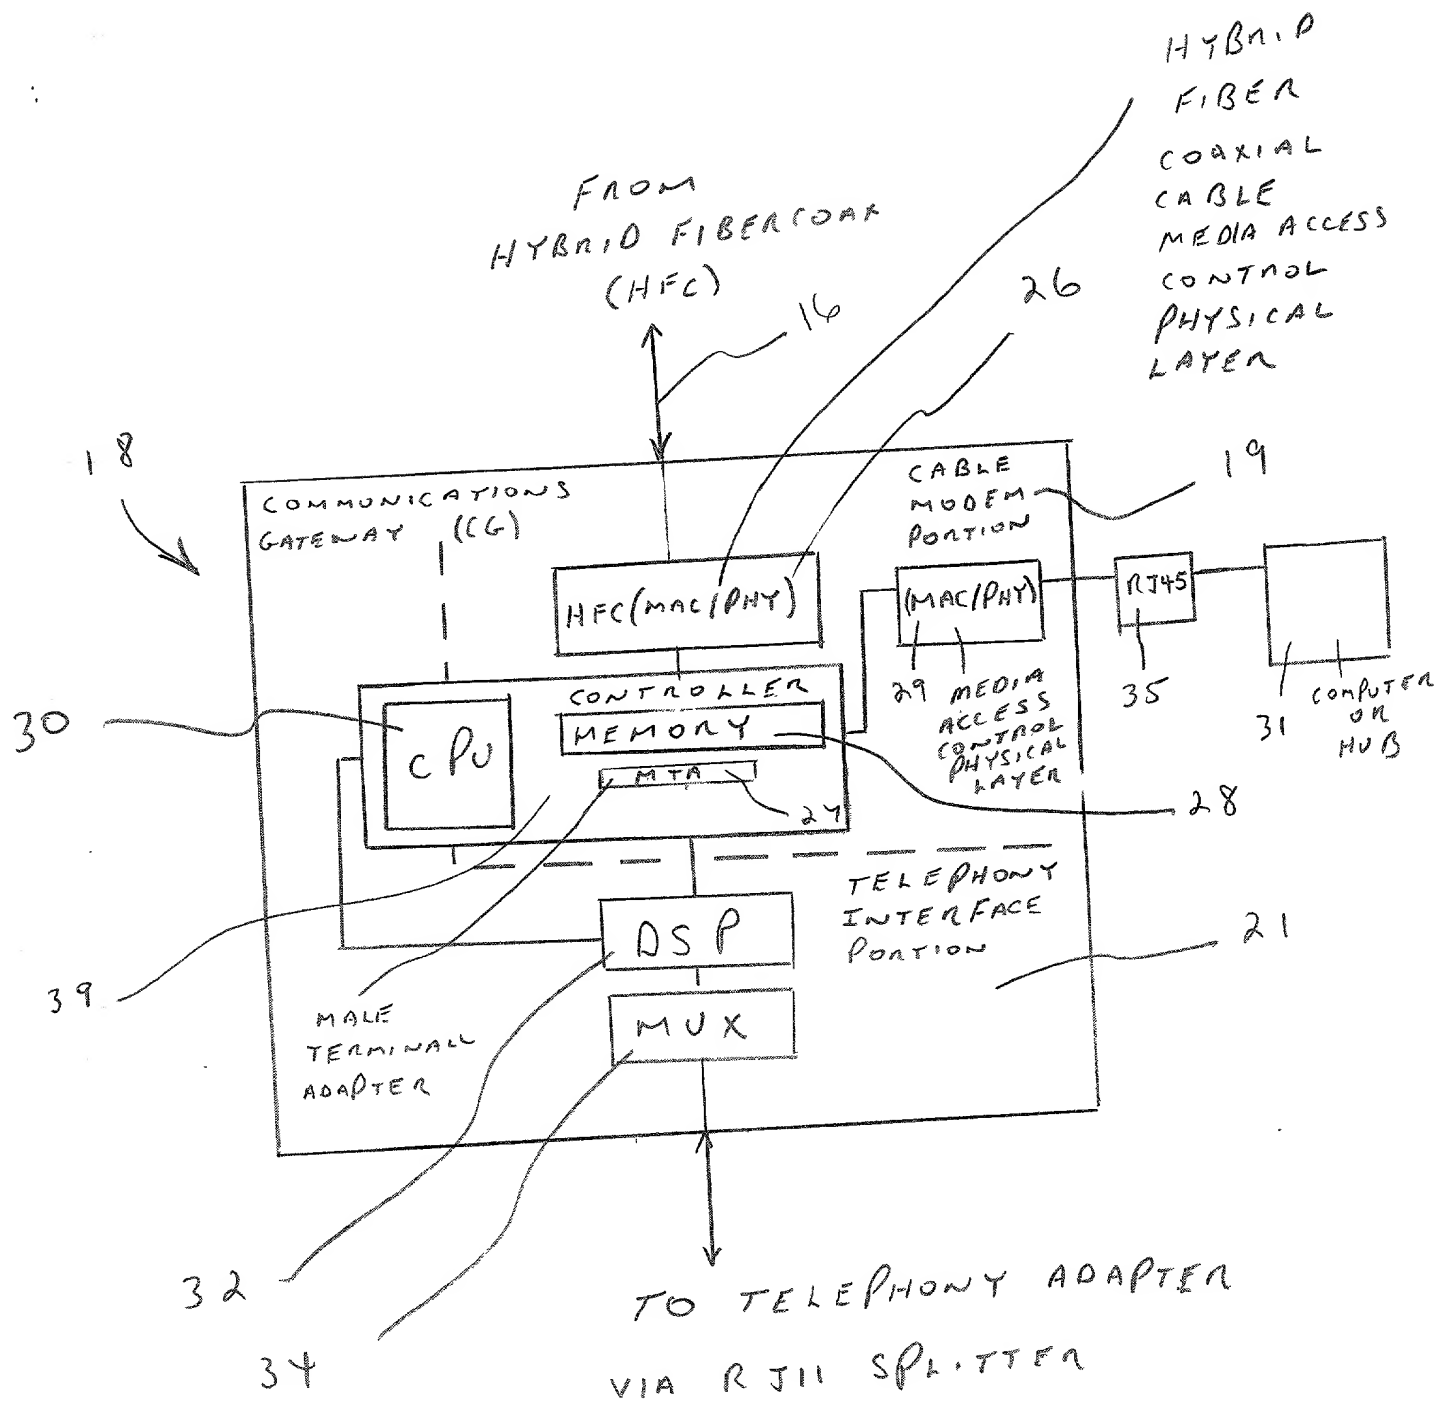 HYBRID
FIBER
COAXIAL
CABLE
MEDIA ACCESS
CONTROL
PHYSICAL
LAYER
FROM
HYBRID FIBERCOAX
(HFC)
26
16
18
COMMUNICATIONS
GATEWAY (CG)
CABLE
MODEM
PORTION
19
HFC(MAC/PHY)
(MAC/PHY)
RJ45
29
MEDIA
ACCESS
CONTROL
PHYSICAL
LAYER
35
31
COMPUTER
OR
HUB
30
CONTROLLER
CPU
MEMORY
MTA
27
28
TELEPHONY
INTERFACE
PORTION
21
DSP
39
MALE
TERMINALL
ADAPTER
MUX
32
34
TO TELEPHONY ADAPTER
VIA RJ11 SPLITTER